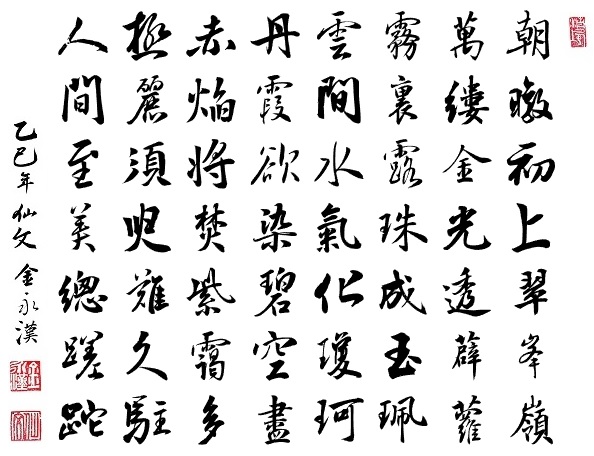 朝暾初上翠峯嶺
萬縷金光透薜蘿
霧裏露珠成玉珮
雲間水氣化瓊珂
丹霞欲染碧空盡
赤焰將焚紫靄多
極麗須臾難久駐
人間至美總蹉跎
乙巳年仙文金永漢